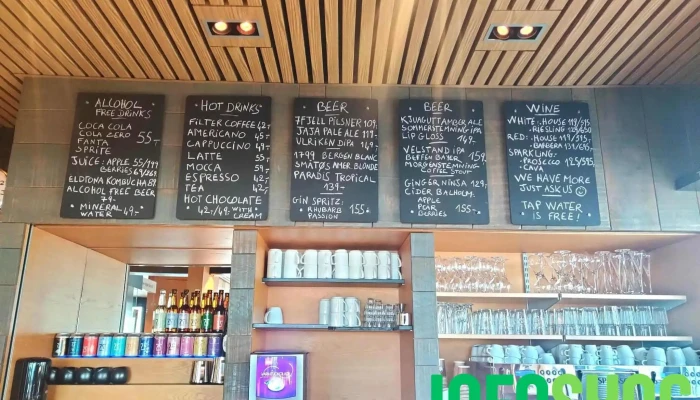 ALCOHOL
FREE DRINKS
COCA COLA
COLA ZERO 55,-
FANTA
SPRITE
JUICE: APPLE 55/
BERRIES 69/
ELDTONA KOMBUCHA 89
ALCOHOL FREE BEER
79-
MINERAL 49,-
WATER
HOT DRINKS
FILTER COFFEE 42,-
AMERICANO 45,-
CAPPUCCINO 49,-
LATTE 55,-
MOCCA 59,-
ESPRESSO 42,-
TEA 42,-
HOT CHOLOCATE
42,-/49,- WITH CREAM
BEER
7FJELL PILSNER 109,
JAJA PALE ALE 119-
ULRIKEN DIPA 149,-
1799 BERGEN BLANC
SMÅTØS AMER BLONDE
PARADIS TROPICAL
139-
GIN SPRITZ: 155-
RHUBARB
PASSION
BEER
SOMMERSTEMNING IPA
LIP GLOSS 169.
VELSTAND IPA
BEFFEN BAIER 159.
MORGENSTEMNING
COFFEE STOUT
GINGER NINJA 129,
CIDER BALHOLM:
APPLE
PEAR 155-
BERRIES
WINE
WHITE: HOUSE 119/515,
RIESLING
RED: HOUSE 119/515,
BARBERA
SPARKLING:
PROSECCO 125/595,
CAVA
WE HAVE MORE
JUST ASK US
TAP WATER
IS FREE!